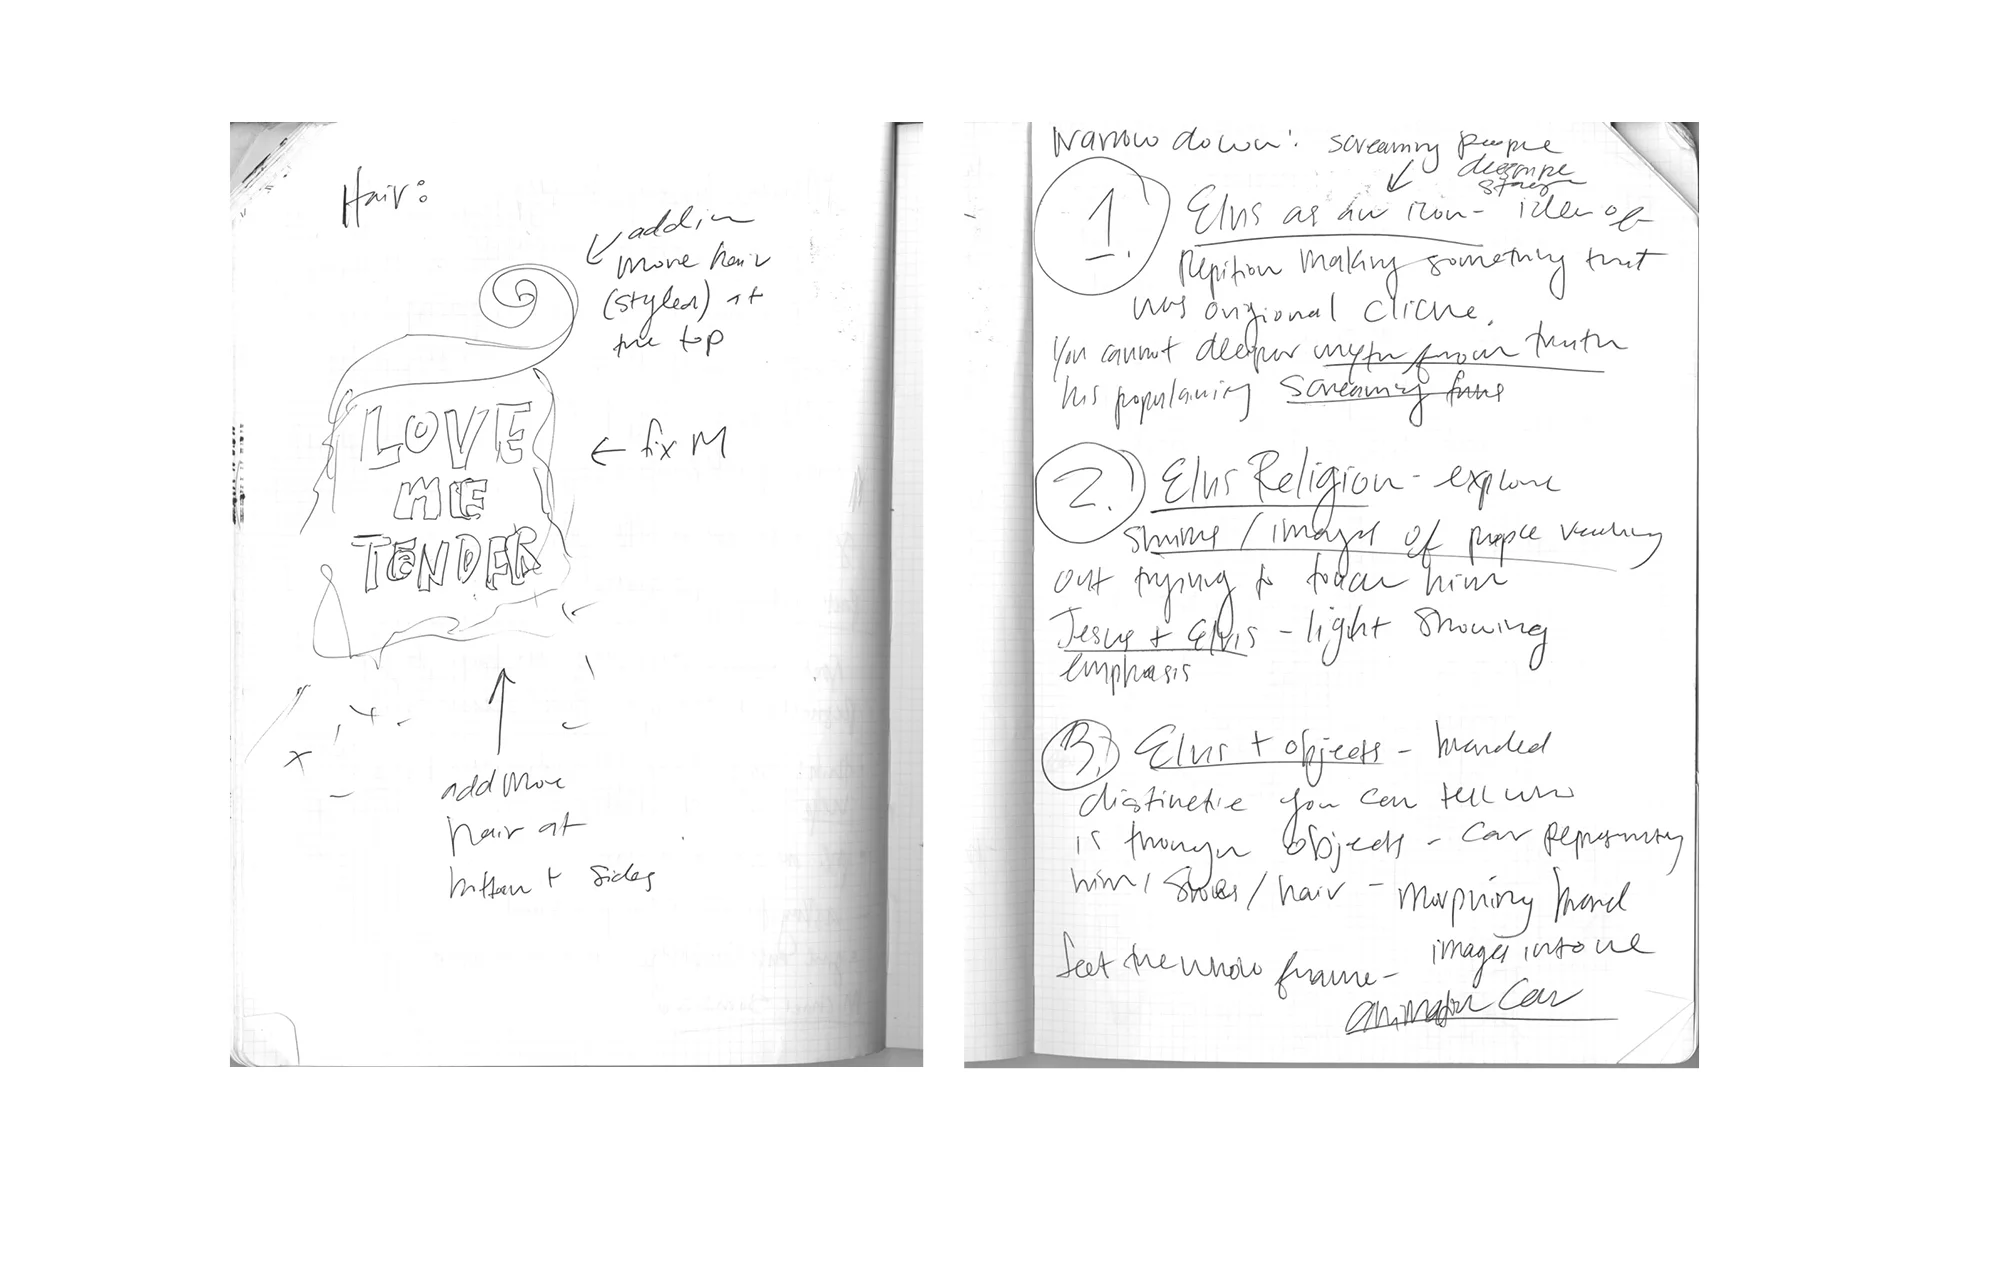 Hair:
add in
more hair
(styled) at
the top
LOVE
ME
TENDER
← fix M
add more
hair at
bottom + sides
Narrow down: screaming people
Elvis as an icon - idea of
1.
repition making something that
was origional cliche.
You cannot myth from truth
his popularity screaming fans
2. Elvis Religion - explore
shrine / images of people reaching
out trying to touch him
Jesus + Elvis - light showing
emphasis
3. Elvis + objects - branded
distinctie you can tell who
is through objects - car representing
him / shoes / hair - morphing brand
images into one
feet the whole frame -
animation car